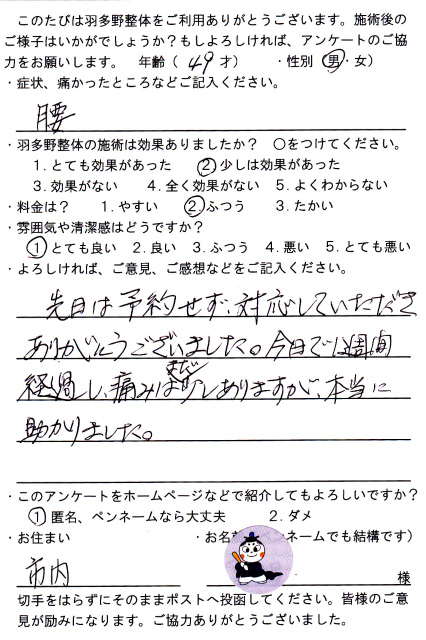 このたびは羽多野整体をご利用ありがとうございます。施術後の
ご様子はいかがでしょうか?もしよろしければ、アンケートのご協
力をお願いします。 年齢( 49 才) ・性別(男・女)
・症状、痛かったところなどご記入ください。
腰
・羽多野整体の施術は効果ありましたか? ○をつけてください。
1.とても効果があった ②少しは効果があった
3.効果がない 4.全く効果がない 5.よくわからない
・料金は? 1.やすい ②.ふつう 3.たかい
・雰囲気や清潔感はどうですか?
①とても良い 2.良い 3.ふつう 4.悪い 5.とても悪い
・よろしければ、ご意見、ご感想などをご記入ください。
先日は予約せず、対応していただき
ありがとうございました。今日で1週間
経過し、痛みはまだ少しありますが、本当に
助かりました。
・このアンケートをホームページなどで紹介してもよろしいですか?
①匿名、ペンネームなら大丈夫 2.ダメ
・お住まい ・お名 ネームでも結構です)
市内 様
切手をはらずにそのままポストへ投函してください。皆様のご意
見が励みになります。ご協力ありがとうございました。